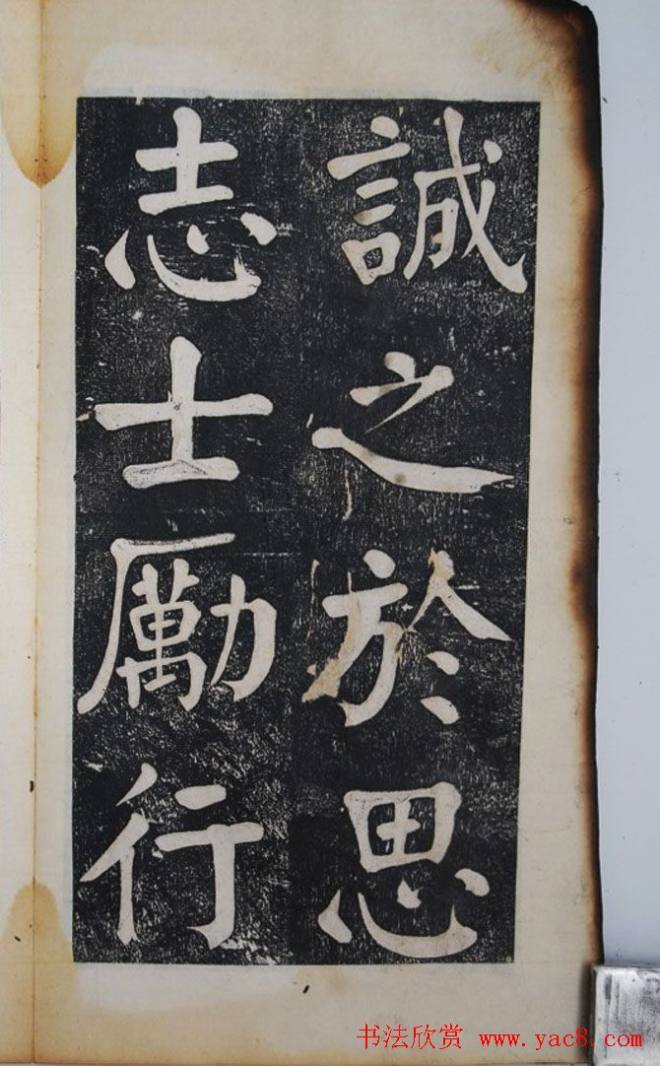 誠之於思
志士勵行
书法欣赏 www.yac8.com